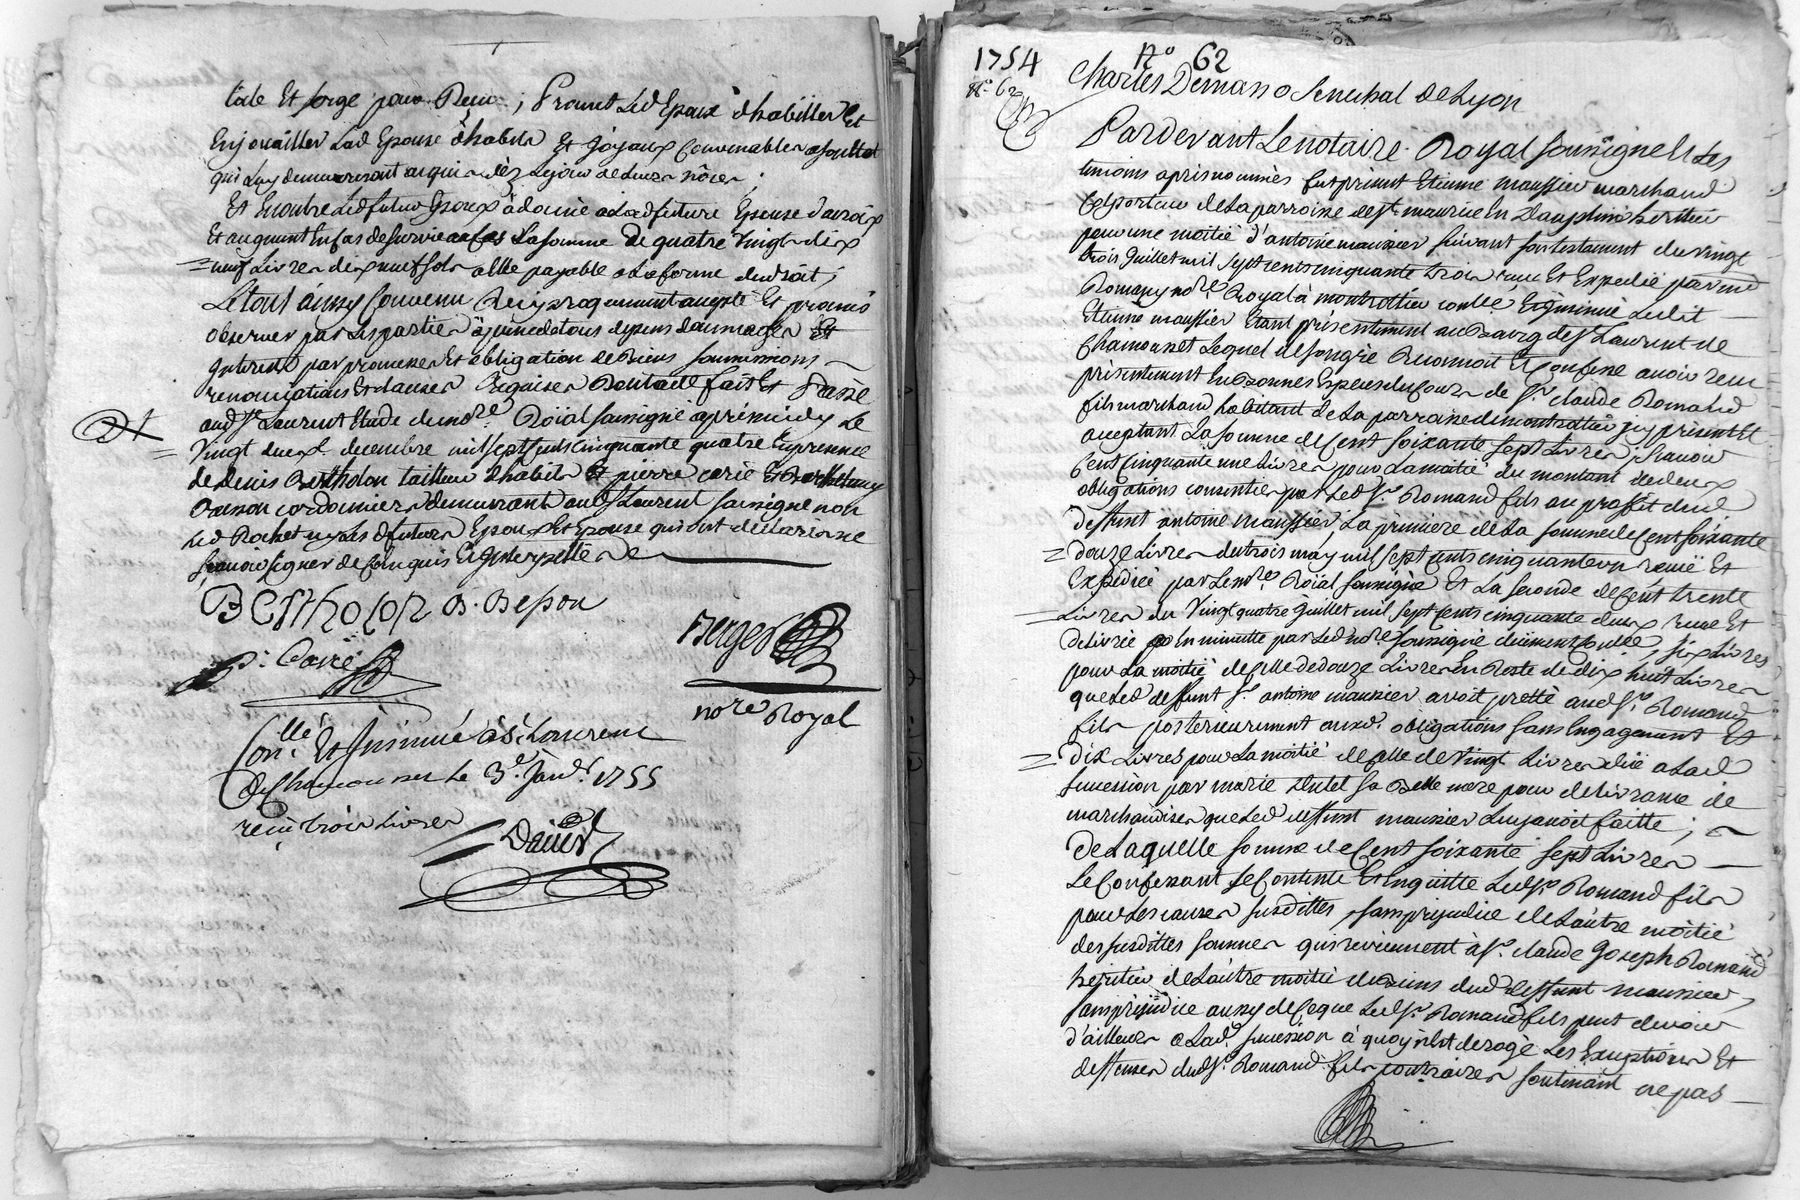 lade Et forge pour ; Promet Led Epoux d'habiller Et
Enjouailler Lad Epouse d'habits Et joyaux Convenables a son Etat
qui Luy demeureront acquis dès Le jour de Leurs nôces ;
Et Enoutre Led futur Epoux à donné a Lad future Epouse d'accroix
Et augment En Cas de Survie La Somme De quatre Vingt dix
neuf Livres dix neuf sols a Elle payable a La forme du droit ;
Le tout ainsy Convenu Reciproquement accepté Et promis
observer par Les parties à peine de tous depens dommages Et
Interets par promesses Et obligation de Biens soumissions
renonciations Et clauses Requises Dont acte fait Et Passé
aud St Laurent Etude du nore Roïal soussigné après midy Le
Vingt deux decembre mil Sept Cents Cinquante quatre En presence
de denis Bertholon tailleur d'habits Et pierre carié Et
cordonniers demeurant aud St Laurent soussignés non
Led Rochet ny Les d futurs Epoux Et Epouse qui ont declaré ne
Scavoir signer de Ce Enquis Et Interpellés
BERTholon B. Besson
P. Carié
Berger
nore Royal
Conllé Et Insinué à St Laurent
de Chamousset Le 3e Janvr 1755
reçu trois Livres
David
1754 No 62
No 62
Charles Demasso Senechal de Lyon
Pardevant Le notaire Royal soussigné Et Les
temoins après nommés fut présent Etienne maussier marchand
Colporteur de La parroisse de St maurice En Dauphiné heritier
pour une moitié d'antoine maussier suivant son testament du vingt
trois Juillet mil sept cents cinquante trois reçu Et Expedié par me
Romany nore Royal à montrottier conllé Et Insinué Ledit
Etienne maussier Etant présentement au Bourg de St Laurent de
Chamousset Lequel de son gré Reconnoit Et Confesse avoir reçu
présentement En Bonnes Especes du Cours de Sr claude Romand
fils marchand habitant de La parroisse de montrottier Icy présent Et
acceptant La somme de Cent soixante sept Livres ; scavoir
Cent Cinquante une Livres pour La moitié du montant de deux
obligations consenties par Led Sr Romand fils au proffit dud
deffunt antoine maussier, La premiere de La somme de Cent soixante
douze Livres du trois may mil sept cents cinquante un recuë Et
Expédiée par Le nore Roïal soussigné Et La seconde de Cent trente
Livres du Vingt quatre Juillet mil sept cents cinquante deux recue Et
delivrée En minutte par Led nore soussigné düement conllée, six Livres
pour La moitié de Celle de douze Livres En Reste de dix huit Livres
que Led deffunt Sr antoine maussier avoit pretté aud Sr Romand
fils posterieurement auxd obligations sans Engagement Et
Dix Livres pour La moitié de Celle de Vingt Livres düe a Lad
succession par marie Dutel sa Belle mere pour delivrance de
marchandises que Led deffunt maussier Luy avoit faitte ;
De Laquelle somme de Cent soixante sept Livres
Le Confessant se Contente Et En quitte Led Sr Romand fils
pour Les causes susdittes, sans prejudice de L'autre moitié
des susdittes sommes qui reviennent à Sr claude Joseph Romand
heritier de L'autre moitié des Biens dud deffunt maussier,
sans prejudice aussy de Ce que Led Sr Romand fils peut devoir
d'ailleurs a Lad succession à quoy n'est derogé Les Exceptions Et
deffenses dud Sr Romand fils contraires soutenant ne pas